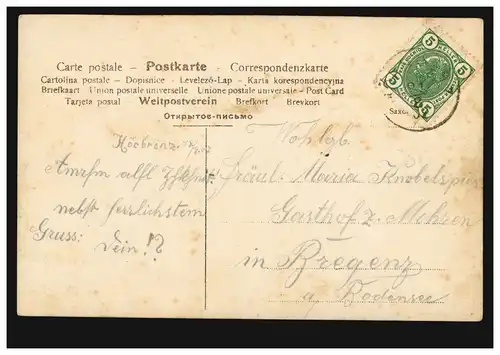 Carte postale – Postkarte – Correspondenzkarte
Cartolina postale – Dopisnice – Levelező-Lap – Karta korespondencyjna
Briefkaart Union postale universelle – Unione postale universale – Post Card
Tarjeta postal Weltpostverein – Brefkort – Brevkort
Открытое-письмо
Hörbranz
nebst herzlichstem
Gruss: Dein !?
Wohlgb.
Fräul. Maria
Gasthof z. Mohren
in Bregenz
a. Bodensee
5 5
5 5